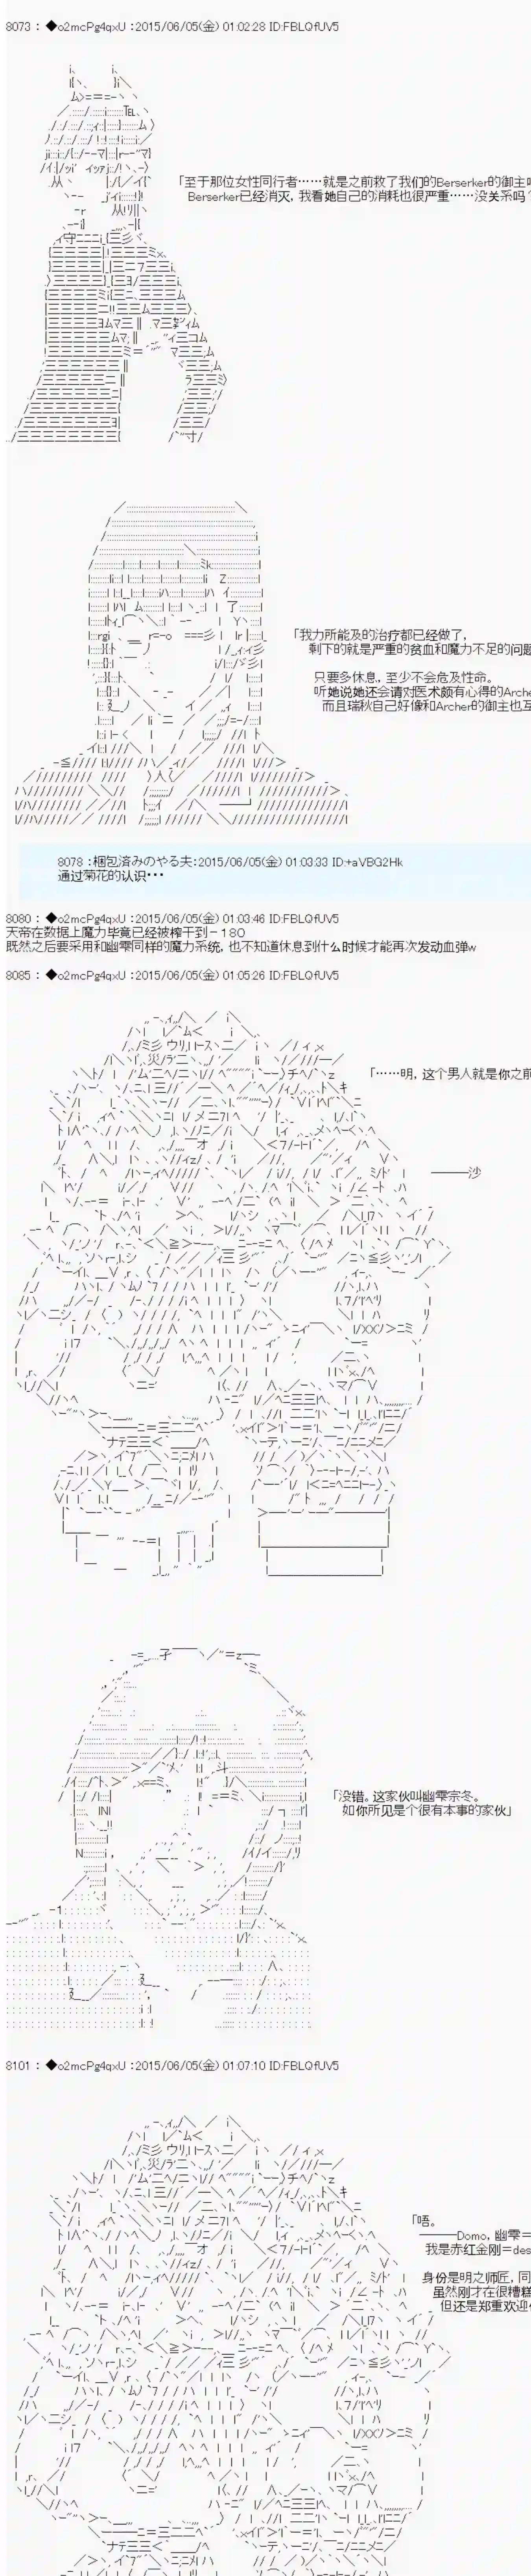 8073 : ◆o2mcPg4qxU :2015/06/05(金) 01:02:28 ID:FBLQfUV5
「至于那位女性同行者……就是之前救了我们的Berserker的御主
Berserker已经消灭，我看她自己的消耗也很严重……没关系吗
「我力所能及的治疗都已经做了，
剩下的就是严重的贫血和魔力不足的问题
只要多休息，至少不会危及性命。
听她说她还会请对医术颇有心得的Arche
而且瑞秋自己好像和Archer的御主也互
8078 :梱包済みのやる夫:2015/06/05(金) 01:03:33 ID:+aVBG2Hk
通过菊花的认识・・・
8080 : ◆o2mcPg4qxU :2015/06/05(金) 01:03:46 ID:FBLQfUV5
天帝在数据上魔力毕竟已经被榨干到－180
既然之后要采用和幽雫同样的魔力系统，也不知道休息到什么时候才能再次发动血弹w
8085 : ◆o2mcPg4qxU :2015/06/05(金) 01:05:26 ID:FBLQfUV5
「……明，这个男人就是你之前
———沙
「没错。这家伙叫幽雫宗冬。
如你所见是个很有本事的家伙」
8101 : ◆o2mcPg4qxU :2015/06/05(金) 01:07:10 ID:FBLQfUV5
「唔。
———Domo，幽雫=
我是赤红金刚=des
身份是明之师匠，同
虽然刚才在很糟糕
但还是郑重欢迎